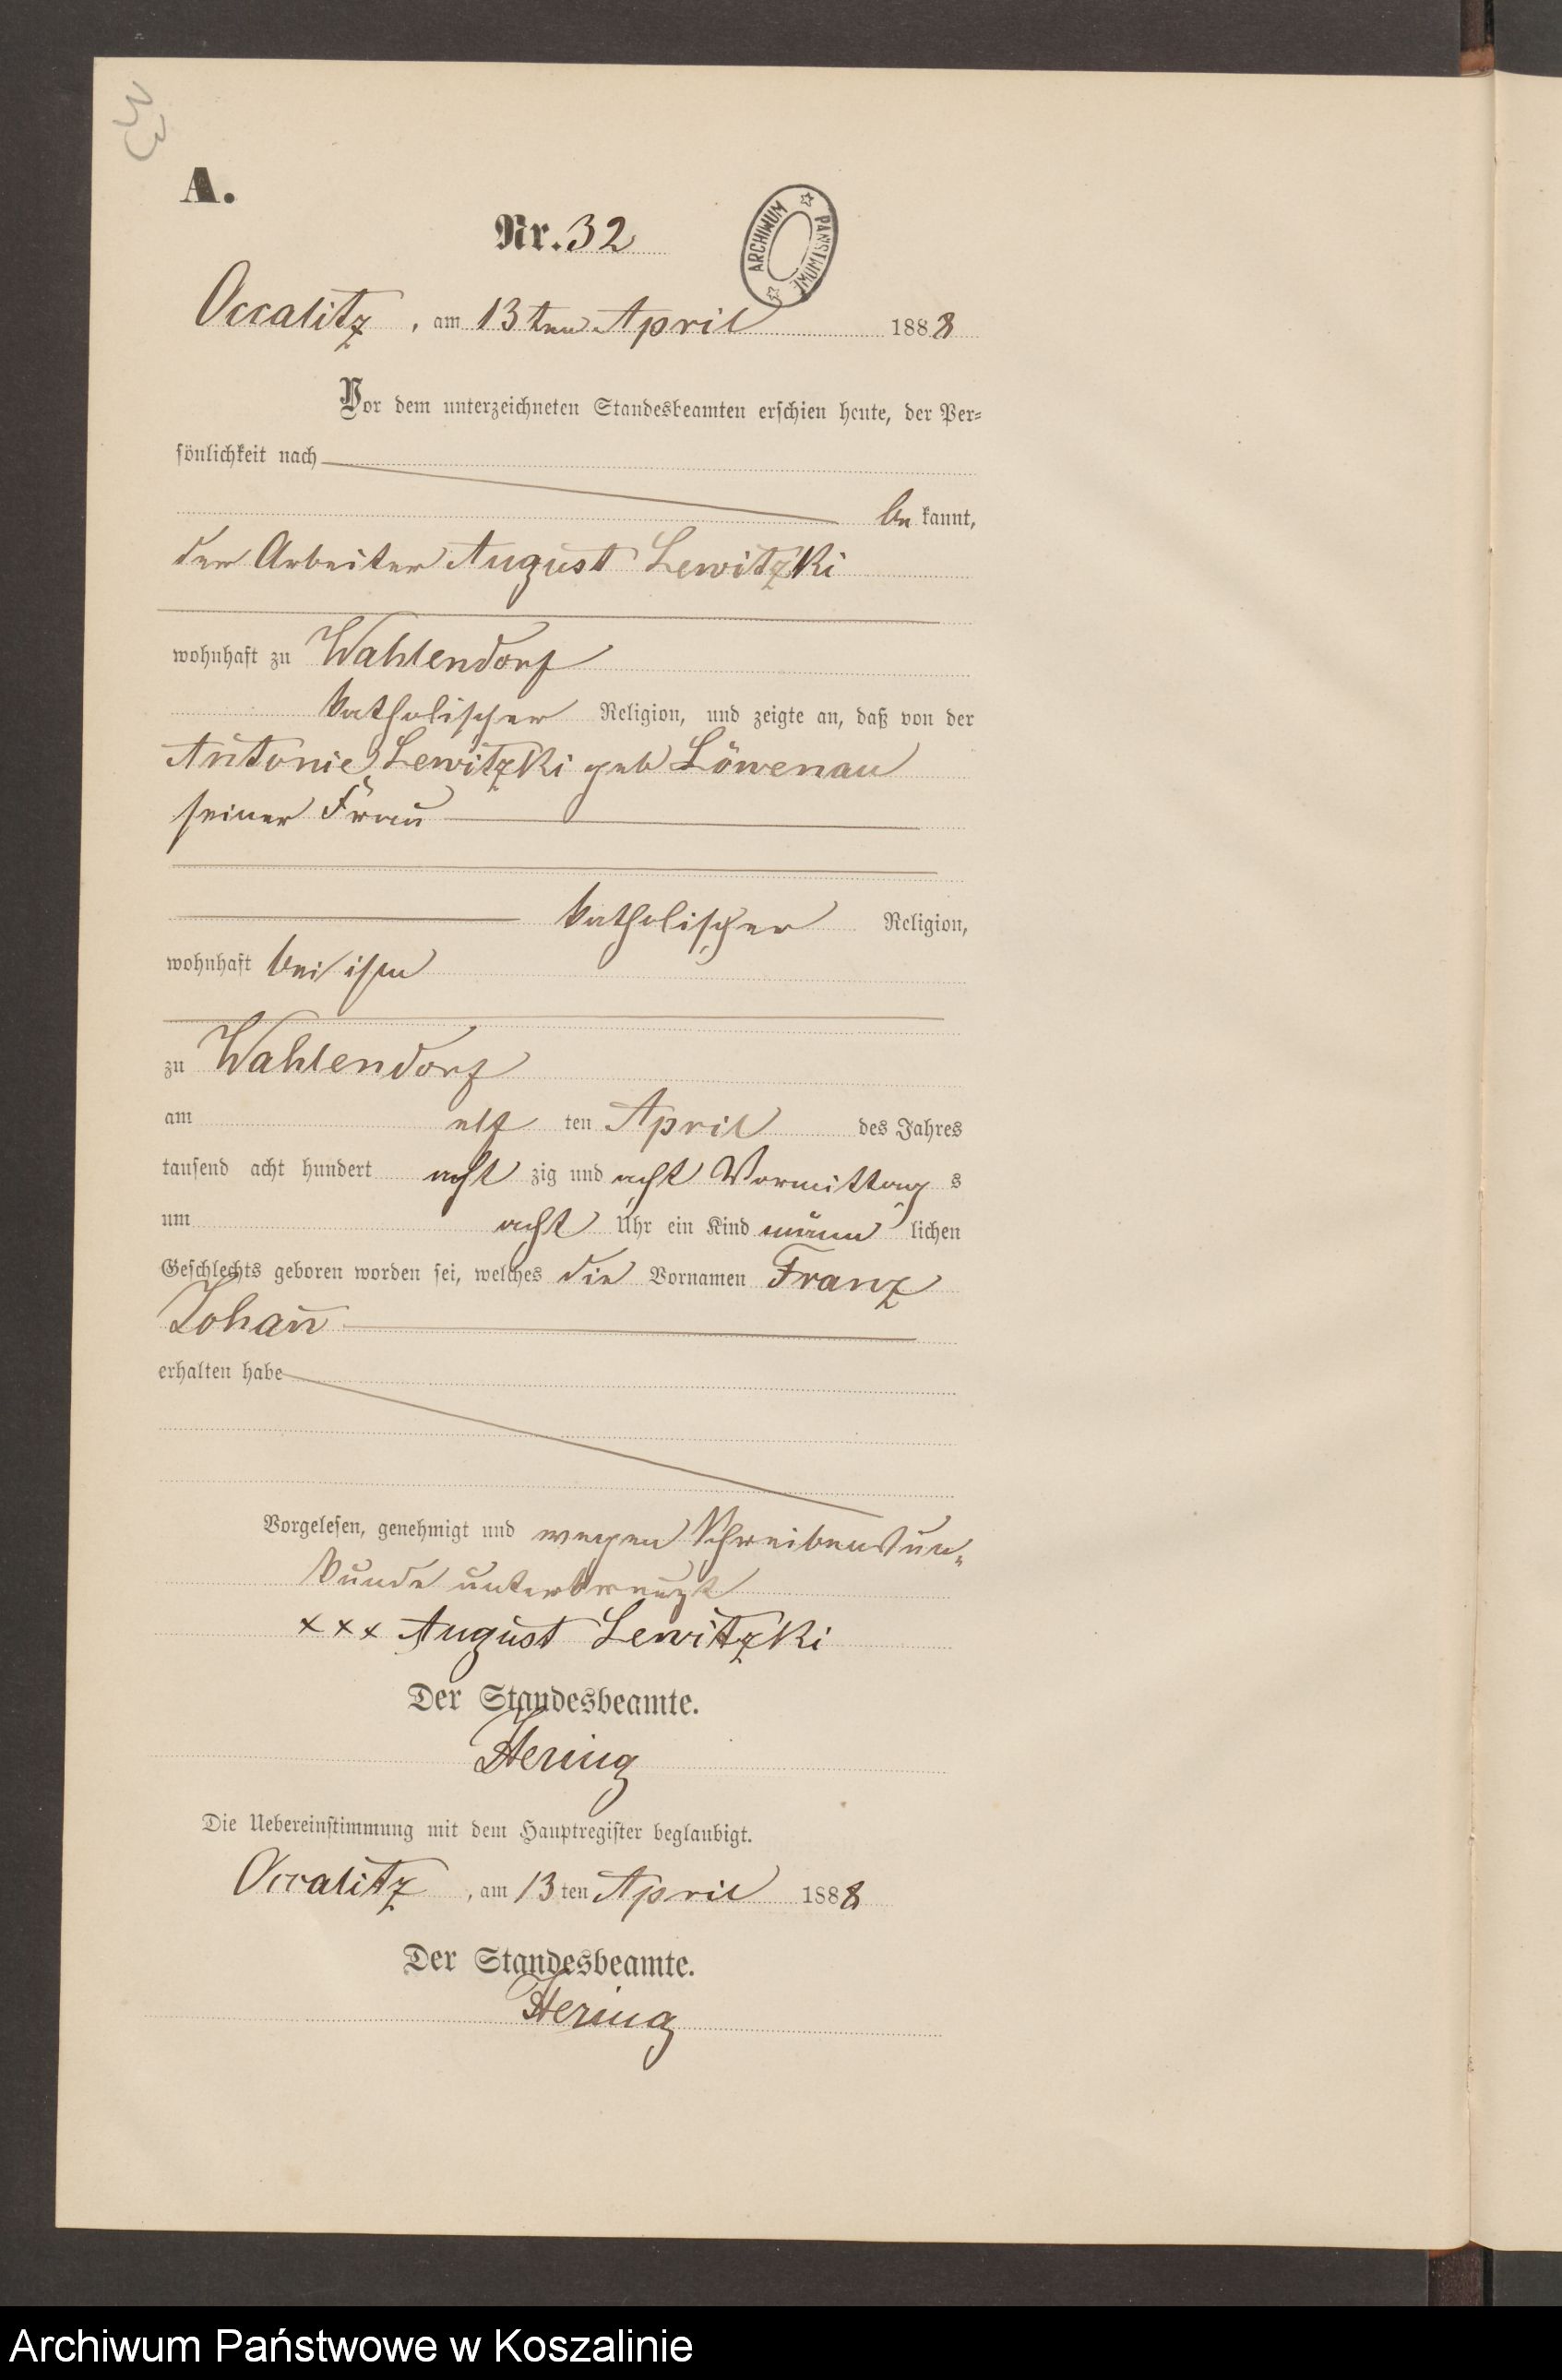 A.
Nr. 32
ARCHIWUM PAŃSTWOWE
Occalitz, am 13ten April 1888
Vor dem unterzeichneten Standesbeamten erschien heute, der Per=
sönlichkeit nach
be kannt,
der Arbeiter August Lewitzki
wohnhaft zu Wahlendorf
katholischer Religion, und zeigte an, daß von der
Antonie Lewitzki geb Löwenau
seiner Frau
katholischer Religion,
wohnhaft bei ihm
zu Wahlendorf
am elf ten April des Jahres
tausend acht hundert acht zig und acht Vormittag s
um acht Uhr ein Kind männ lichen
Geschlechts geboren worden sei, welches die Vornamen Franz
Johan̄
erhalten habe
Vorgelesen, genehmigt und wegen Schreibensun=
kunde unterkreuzt
xxx August Lewitzki
Der Standesbeamte.
Hering
Die Uebereinstimmung mit dem Hauptregister beglaubigt.
Occalitz, am 13 ten April 1888
Der Standesbeamte.
Hering
Archiwum Państwowe w Koszalinie